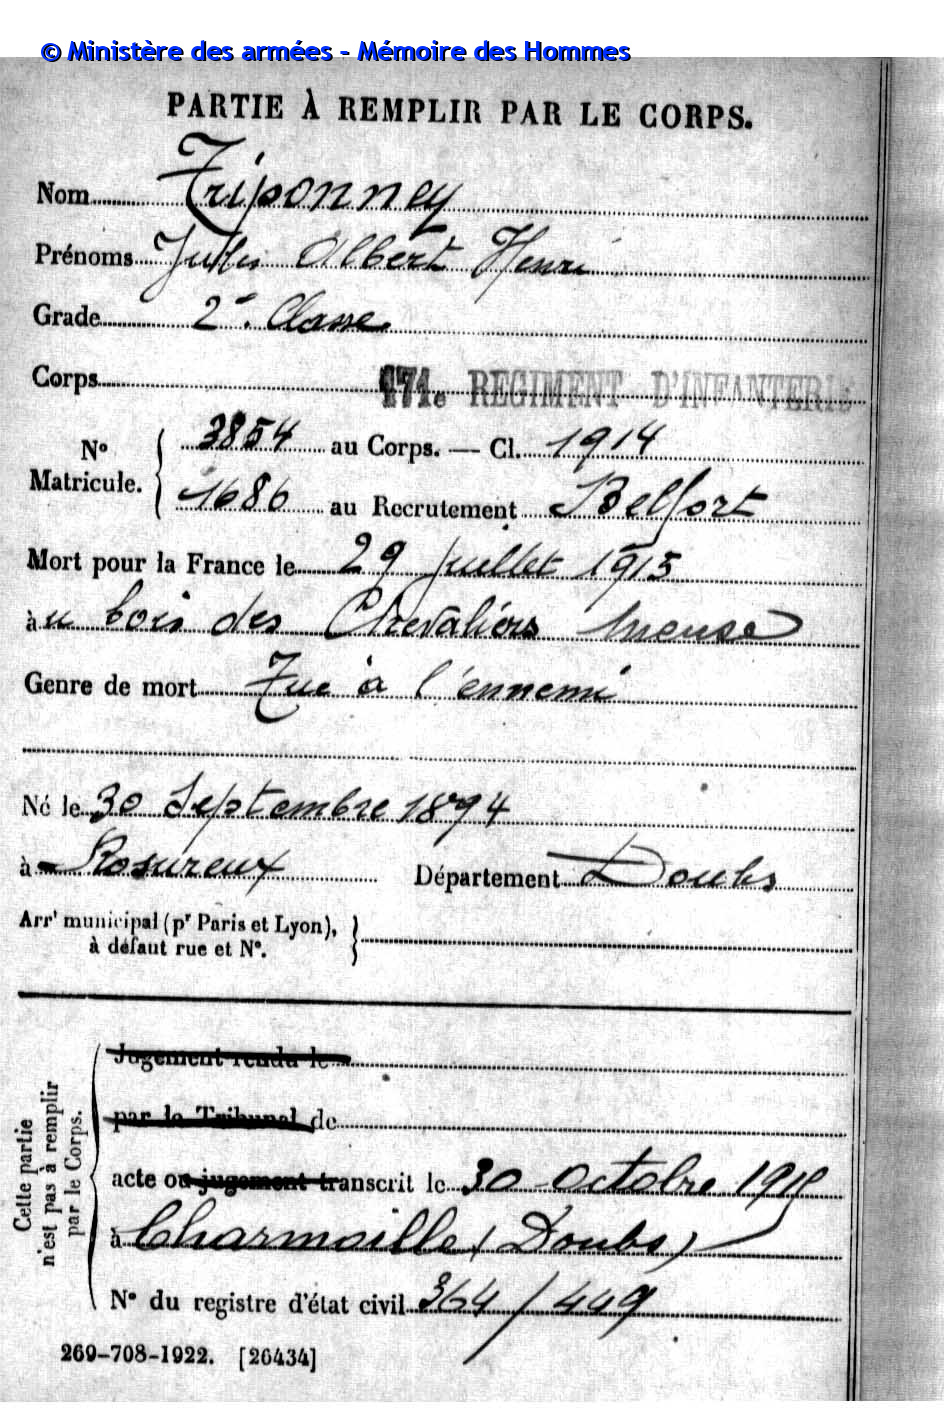 © Ministère des armées - Mémoire des Hommes
PARTIE À REMPLIR PAR LE CORPS.
Nom Triponney
Prénoms Jules Albert Henri
Grade 2e Classe
Corps 171e REGIMENT D'INFANTERIE
No Matricule. 3854 au Corps. — Cl. 1914
1686 au Recrutement Belfort
Mort pour la France le 29 juillet 1915
àu bois des Chevaliers Meuse
Genre de mort Tué à l'ennemi
Né le 30 Septembre 1894
à Rosureux Département Doubs
Arrt municipal (pr Paris et Lyon),
à défaut rue et No.
Cette partie
n'est pas à remplir
par le Corps.
Jugement rendu le
par le Tribunal de
acte ou jugement transcrit le 30 Octobre 1915
à Charmoille (Doubs)
No du registre d'état civil 364/449
269-708-1922. [26434]